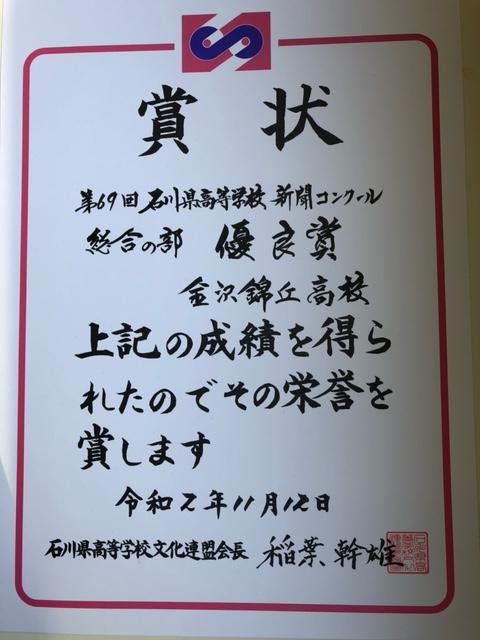 賞状
第69回石川県高等学校新聞コンクール
総合の部 優良賞
金沢錦丘高校
上記の成績を得ら
れたのでその栄誉を
賞します
令和2年11月12日
石川県高等学校文化連盟会長 稲葉幹雄